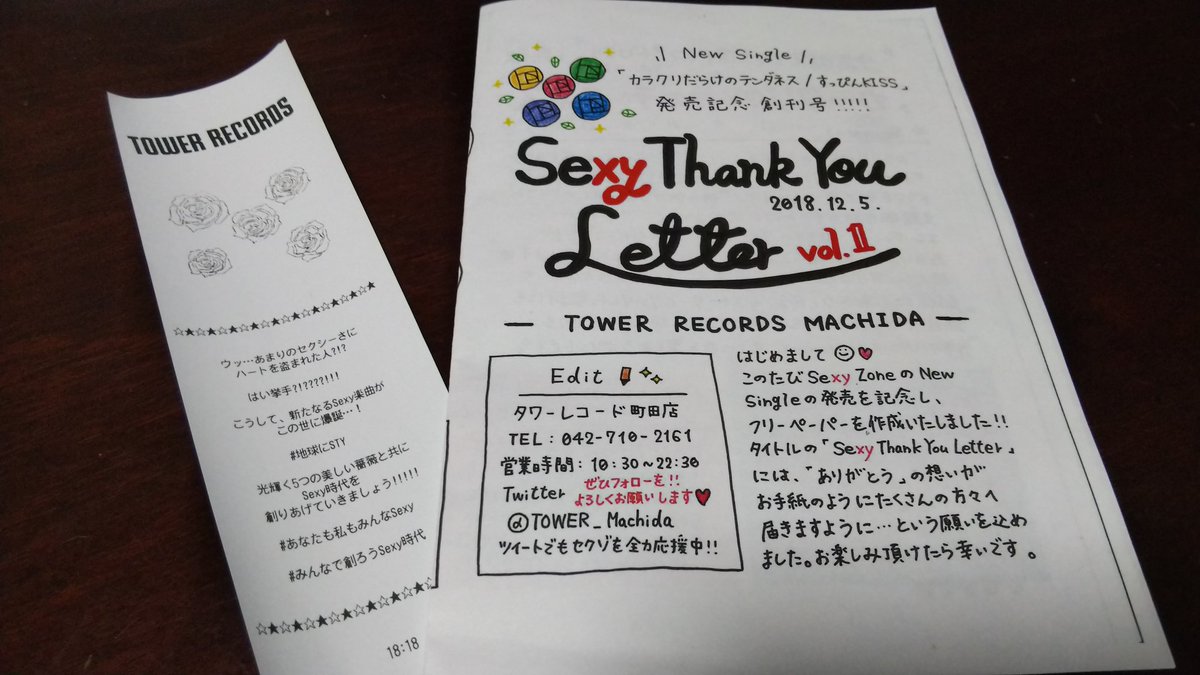 TOWER RECORDS
☆★☆★☆★☆★☆★☆★☆★☆★☆★☆★☆★
ウッ…あまりのセクシーさに
ハートを盗まれた人?!?
はい挙手?!????!!!
こうして、新たなるSexy楽曲が
この世に爆誕…!
#地球にSTY
光輝く5つの美しい薔薇と共に
Sexy時代を
創りあげていきましょう!!!!!
#あなたも私もみんなSexy
#みんなで創ろうSexy時代
☆★☆★☆★☆★☆★☆★☆★☆★☆★☆★☆
18:18
\\ New Single //
「カラクリだらけのテンダネス/すっぴんKISS」
発売記念 創刊号!!!!!
Sexy Thank You
2018.12.5.
Letter vol.1
— TOWER RECORDS MACHIDA —
Edit
タワーレコード町田店
TEL:042-710-2161
営業時間:10:30~22:30
Twitter ぜひフォローを!!
よろしくお願いします♥
@TOWER_Machida
ツイートでもセクゾを全力応援中!!
はじめまして☺♥
このたびSexy ZoneのNew
Singleの発売を記念し、
フリーペーパーを作成いたしました!!
タイトルの「Sexy Thank You Letter」
には、「ありがとう」の想いが
お手紙のようにたくさんの方々へ
届きますように…という願いを込め
ました。お楽しみ頂けたら幸いです。